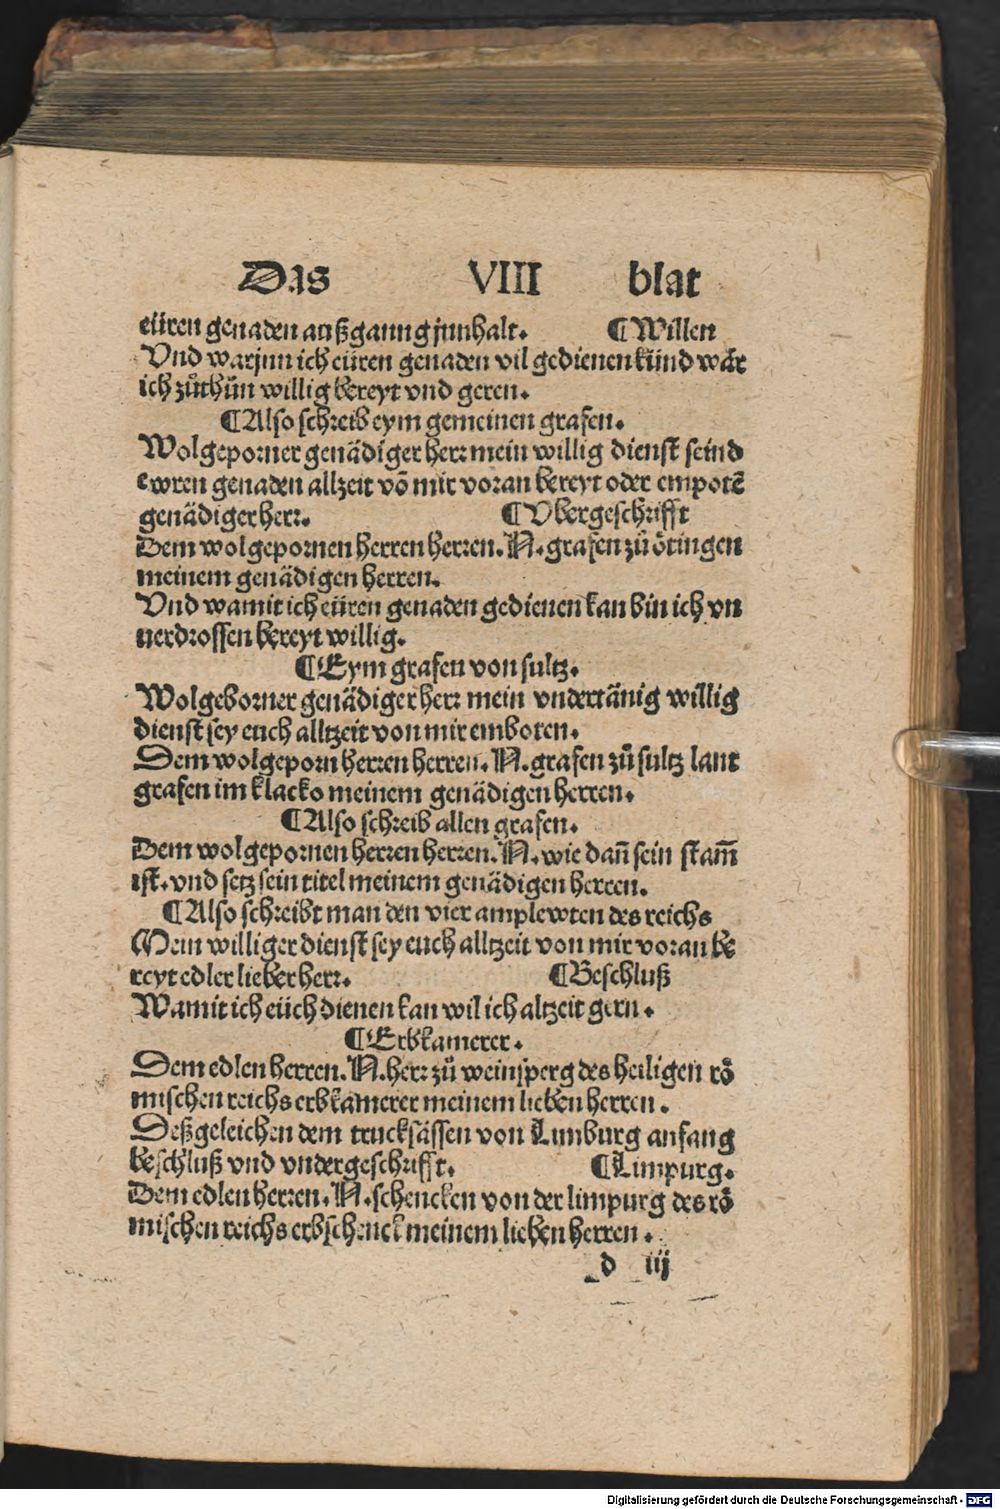 Das VIII blat
eüren genaden außganng jnnhalt. ¶Willen
Vnd warjnn ich eüren genaden vil gedienen kund wär
ich zůthůn willig bereyt vnd geren.
¶Also schreib eym gemeinen grafen.
Wolgeporner genädiger herr mein willig dienst seind
ewren genaden allzeit võ mir voran bereyt oder empotẽ
genädiger herr. ¶Vbergeschrifft
Dem wolgepornen herren herren. N. grafen zů ötingen
meinem genädigen herren.
Vnd wamit ich eüren genaden gedienen kan bin ich vn
uerdrossen bereyt willig.
¶Eym grafen von sultz.
Wolgeborner genädiger herr mein vndertänig willig
dienst sey euch alltzeit von mir emboten.
Dem wolgeporn herren herren. N. grafen zů sultz lant
grafen im klacko meinem genädigen herren.
¶Also schreib allen grafen.
Dem wolgepornen herren herren. N. wie dañ sein stam̃
ist. vnd setz sein titel meinem genädigen herren.
¶Also schreibt man den vier amplewten des reichs
Mein williger dienst sey euch alltzeit von mir voran be
reyt edler lieber herr. ¶Beschluß
Wamit ich eüch dienen kan wil ich altzeit gern.
¶Erbkamerer.
Dem edlen herren. N. herr zů weinsperg des heiligen rö
mischen reichs erbkamerer meinem lieben herren.
Deßgeleichen dem trucksässen von Lunburg anfang
beschluß vnd vndergeschrifft. ¶Limpurg.
Dem edlen herren. N. schencken von der limpurg des rö
mischen reichs erbschenck meinem lieben herren.
d iij
Digitalisierung gefördert durch die Deutsche Forschungsgemeinschaft - DFG